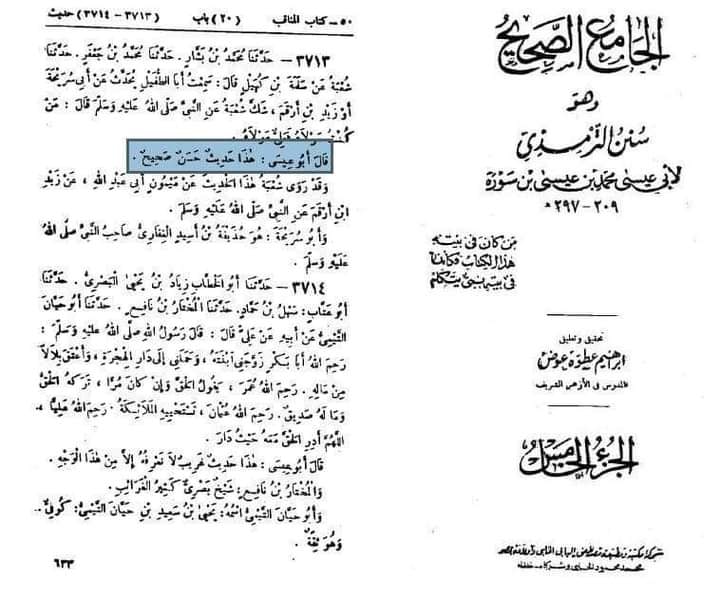 الجامع الصحيح
وهو
سنن الترمذي
لأبي عيسى محمد بن عيسى بن سورة
٢٠٩ - ٢٩٧ هـ
من كان فى بيته
هذا الكتاب فكأنما
فى بيته نبى يتكلم
تحقيق وتعليق
ابراهيم عطوة عوض
المدرس فى الأزهر الشريف
الجزء الخامس
شركة مكتبة ومطبعة مصطفى البابى الحلبى وأولاده بمصر
محمد محمود الحلبى وشركاه - خلفاء
٥٠ - كتاب المناقب (٢٠) باب (٣٧١٣ - ٣٧١٤) حديث
٣٧١٣ — حَدَّثَنَا مُحَمَّدُ بْنُ بَشَّارٍ . حَدَّثَنَا مُحَمَّدُ بْنُ جَعْفَرٍ . حَدَّثَنَا
شُعْبَةُ عَنْ سَلَمَةَ بْنِ كُهَيْلٍ قَالَ : سَمِعْتُ أَبَا الطُّفَيْلِ يُحَدِّثُ عَنْ أَبِي سَرِيحَةَ
أَوْ زَيْدِ بْنِ أَرْقَمَ ، شَكَّ شُعْبَةُ عَنِ النَّبِيِّ صَلَّى اللهُ عَلَيْهِ وَسَلَّمَ قَالَ : مَنْ
كُنْتُ مَوْلَاهُ فَعَلِيٌّ مَوْلَاهُ .
قَالَ أَبُو عِيسَى : هٰذَا حَدِيثٌ حَسَنٌ صَحِيحٌ .
وَقَدْ رَوَى شُعْبَةُ هٰذَا الْحَدِيثَ عَنْ مَيْمُونٍ أَبِي عَبْدِ اللهِ ، عَنْ زَيْدِ
ابْنِ أَرْقَمَ عَنِ النَّبِيِّ صَلَّى اللهُ عَلَيْهِ وَسَلَّمَ .
وَأَبُو سَرِيحَةَ : هُوَ حُذَيْفَةُ بْنُ أَسِيدٍ الْغِفَارِيُّ صَاحِبُ النَّبِيِّ صَلَّى اللهُ
عَلَيْهِ وَسَلَّمَ .
٣٧١٤ — حَدَّثَنَا أَبُو الْخَطَّابِ زِيَادُ بْنُ يَحْيَى الْبَصْرِيُّ . حَدَّثَنَا
أَبُو عَتَّابٍ : سَهْلُ بْنُ حَمَّادٍ . حَدَّثَنَا الْمُخْتَارُ بْنُ نَافِعٍ . حَدَّثَنَا أَبُو حَيَّانَ
التَّيْمِيُّ عَنْ أَبِيهِ عَنْ عَلِيٍّ قَالَ : قَالَ رَسُولُ اللهِ صَلَّى اللهُ عَلَيْهِ وَسَلَّمَ :
رَحِمَ اللهُ أَبَا بَكْرٍ زَوَّجَنِي ابْنَتَهُ ، وَحَمَلَنِي إِلَى دَارِ الْهِجْرَةِ ، وَأَعْتَقَ بِلَالًا
مِنْ مَالِهِ . رَحِمَ اللهُ عُمَرَ ، يَقُولُ الْحَقَّ وَإِنْ كَانَ مُرًّا ، تَرَكَهُ الْحَقُّ
وَمَا لَهُ صَدِيقٌ . رَحِمَ اللهُ عُثْمَانَ ، تَسْتَحْيِيهِ الْمَلَائِكَةُ . رَحِمَ اللهُ عَلِيًّا ،
اللَّهُمَّ أَدِرِ الْحَقَّ مَعَهُ حَيْثُ دَارَ .
قَالَ أَبُو عِيسَى : هٰذَا حَدِيثٌ غَرِيبٌ لَا نَعْرِفُهُ إِلَّا مِنْ هٰذَا الْوَجْهِ .
وَالْمُخْتَارُ بْنُ نَافِعٍ : شَيْخٌ بَصْرِيٌّ كَثِيرُ الْغَرَائِبِ .
وَأَبُو حَيَّانَ التَّيْمِيُّ اسْمُهُ : يَحْيَى بْنُ سَعِيدِ بْنِ حَيَّانَ التَّيْمِيُّ : كُوفِيٌّ .
وَهُوَ ثِقَةٌ .
٦٣٣